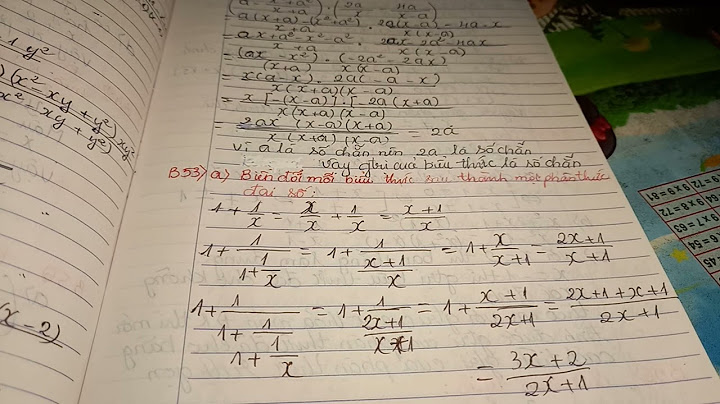 (a - x²+a²/x+a) . (2a/x - 4a/x-a)
= a(x+a)-(x²+a²)/x+a . 2a(x-a) - 4a.x/x(x-a)
= ax+a²-x²-a²/x+a . 2ax-2a²-4ax/x(x-a)
= (ax-x²).(-2a²-2ax)/(x+a) x(x-a)
= x(a-x).2a(-a-x)/x(x+a)(x-a)
= x[-(x-a)].[-2a(x+a)]/x(x+a)(x-a)
= 2ax (x-a)(x+a)/x(x+a)(x-a) = 2a
vì a là số chẵn nên 2a là số chẵn
vậy gtrị của biểu thức là số chẵn
B53) a) Biến đổi mỗi biểu thức sau thành một phân thức
đại số:
1+1/x = x/x + 1/x = x+1/x
1+1/1+1/x = 1+1/x+1/x = 1+x/x+1 = 2x+1/x+1
1+1/1+1/1+1/x = 1+1/2x+1/x+1 = 1+x+1/2x+1 = 2x+1+x+1/2x+1
= 3x+2/2x+1
1 y²
(x²-xy+y²) xy²
x²-xy+y²)
(x-2)
9x9=81
9x8=72
9x7=63